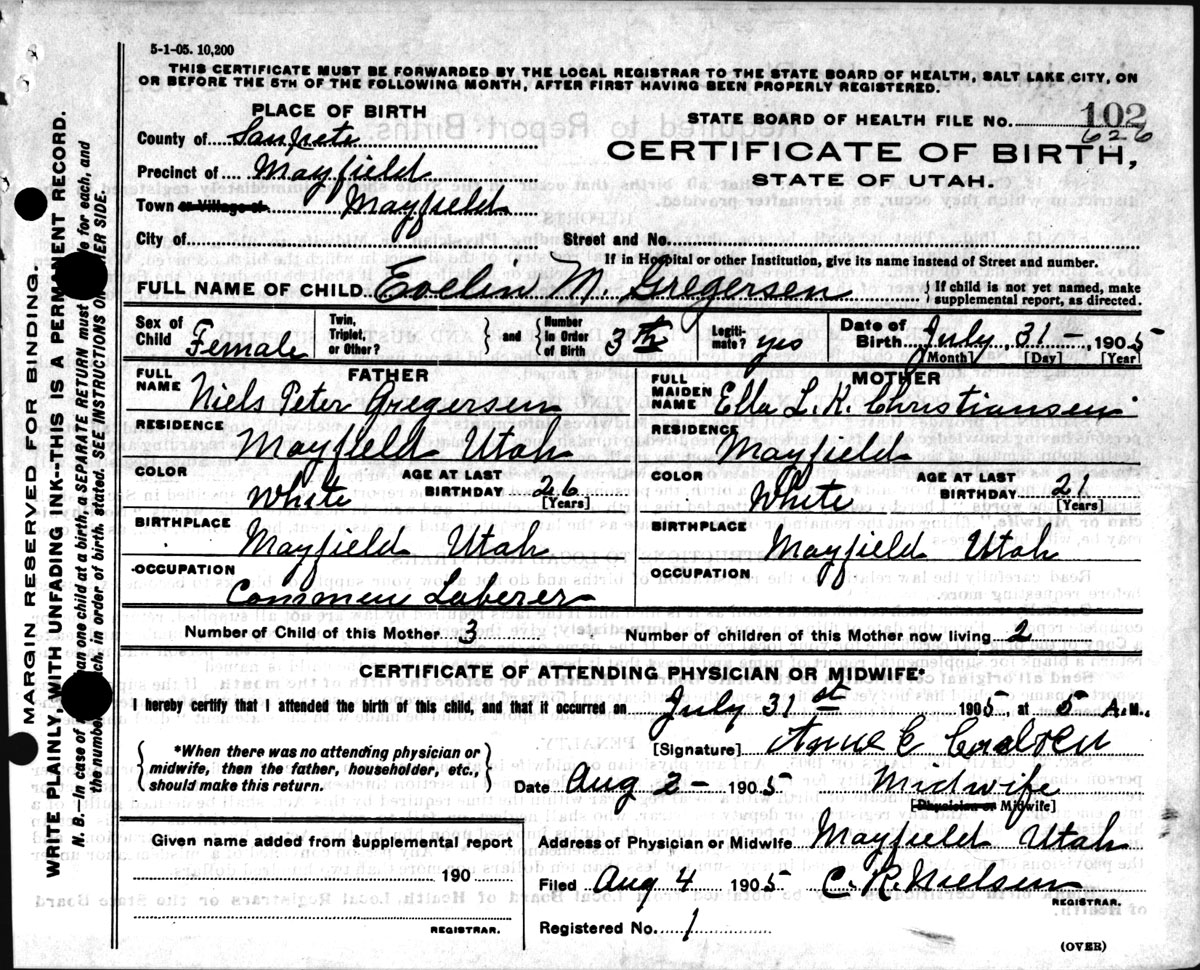 5-1-05. 10,200
THIS CERTIFICATE MUST BE FORWARDED BY THE LOCAL REGISTRAR TO THE STATE BOARD OF HEALTH, SALT LAKE CITY, ON
OR BEFORE THE 5TH OF THE FOLLOWING MONTH, AFTER FIRST HAVING BEEN PROPERLY REGISTERED.
PLACE OF BIRTH
County of Sanpete
Precinct of Mayfield
Town or Village of Mayfield
City of
STATE BOARD OF HEALTH FILE No. 102
626
CERTIFICATE OF BIRTH,
STATE OF UTAH.
Street and No.
If in Hospital or other Institution, give its name instead of Street and number.
FULL NAME OF CHILD Evelin M. Gregersen
{ If child is not yet named, make
supplemental report, as directed.
Sex of Child Female
Twin, Triplet, or Other? } and { Number in Order of Birth 3th
Legitimate? yes
Date of Birth July 31 - 1905
[Month] [Day] [Year]
FATHER
FULL NAME Niels Peter Gregersen
RESIDENCE Mayfield Utah
COLOR White
AGE AT LAST BIRTHDAY 26
[Years]
BIRTHPLACE Mayfield Utah
OCCUPATION Commen Laberer
MOTHER
FULL MAIDEN NAME Ella L. K. Christiansen
RESIDENCE Mayfield
COLOR White
AGE AT LAST BIRTHDAY 21
[Years]
BIRTHPLACE Mayfield Utah
OCCUPATION
Number of Child of this Mother 3
Number of children of this Mother now living 2
CERTIFICATE OF ATTENDING PHYSICIAN OR MIDWIFE*
I hereby certify that I attended the birth of this child, and that it occurred on July 31st 1905, at 5 A.M.
{ *When there was no attending physician or
midwife, then the father, householder, etc.,
should make this return. }
[Signature] C
Date Aug 2 - 1905 Midwife
[Physician or Midwife]
Given name added from supplemental report
190
REGISTRAR.
Address of Physician or Midwife Mayfield Utah
Filed Aug 4 1905 C. R. Nielsen
REGISTRAR.
Registered No. 1
(OVER)
MARGIN RESERVED FOR BINDING.
WRITE PLAINLY, WITH UNFADING INK--THIS IS A PERMANENT RECORD.
N. B.—In case of than one child at a birth, a SEPARATE RETURN must be made for each, and
the number ch, in order of birth, stated. SEE INSTRUCTIONS ON OTHER SIDE.